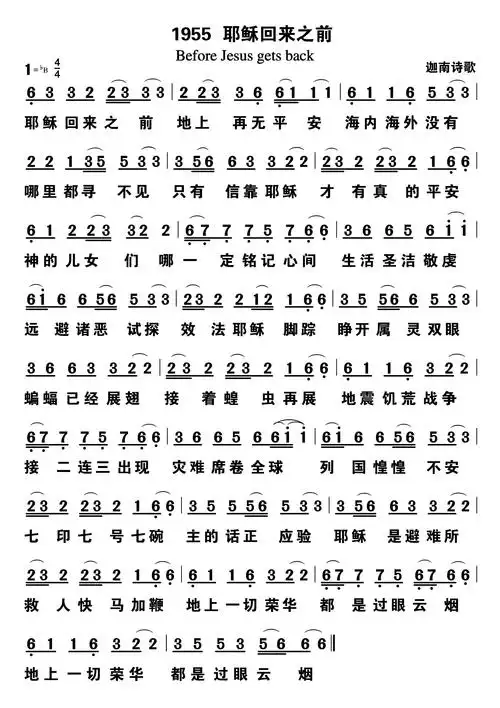 1955 耶稣回来之前
Before Jesus gets back
1=♭B 4/4
迦南诗歌
6 3 3 2 2 3 3 3 | 2 2 3 3 6 6 1 1 1 | 6 1 1 6 5 3 3 |
耶稣回来之 前 地上 再无平 安 海内海外没有
2 2 1 3 5 5 3 3 | 3 5 6 6 3 3 2 2 | 2 3 2 3 1 2 1 6 6 |
哪里都寻 不见 只有 信靠耶稣 才 有真 的平安
6 1 2 2 3 3 2 2 | 6 7 7 7 5 7 6 6 | 3 6 6 5 6 i i |
神的儿女 们 哪一 定铭记心间 生活圣洁敬虔
6 i 6 6 5 6 5 3 3 | 2 3 2 2 1 2 1 6 6 | 3 5 6 5 6 3 5 3 3 |
远避诸恶 试探 效法耶稣 脚踪 睁开属 灵双眼
3 6 6 3 3 2 2 | 2 3 2 3 1 2 1 6 6 | 6 1 1 6 3 2 2 |
蝙蝠已经展翅 接 着蝗 虫再展 地震饥荒战争
6 7 7 7 5 7 6 6 | 3 6 6 5 6 6 i i | 6 i 6 6 5 6 5 3 3 |
接 二连三出现 灾难席卷全球 列 国惶惶 不安
2 3 2 3 2 1 6 6 | 5 3 5 5 6 5 3 3 | 3 5 6 6 3 3 2 2 |
七 印七 号七碗 主的话正 应验 耶稣 是避难所
2 3 2 2 3 2 1 6 6 | 6 1 1 6 3 2 2 | 6 7 7 7 5 6 7 6 6 |
救 人快 马加鞭 地上一切荣华 都 是过眼云 烟
6 1 1 6 3 2 2 | 3 5 3 3 5 6 6 6 ‖
地上一切荣华 都是过眼云 烟